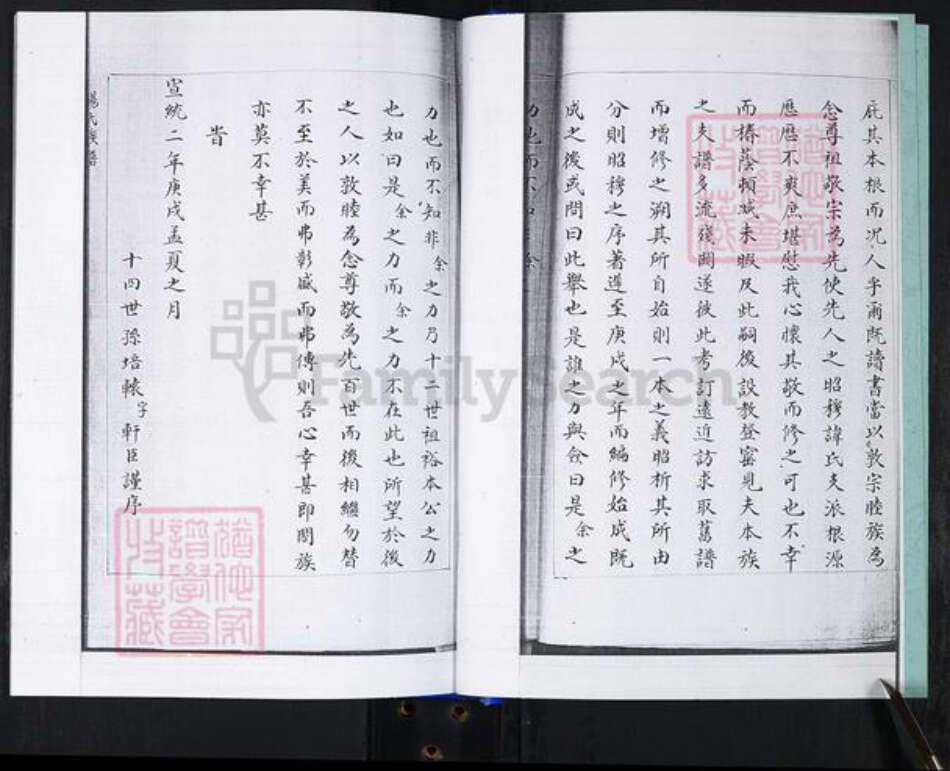 庇其本根而况人乎爾既讀書當以敦宗睦族為
念尊祖敬宗為先使先人之昭穆諱氏支派根源
歷歷不爽庶堪慰我心懷其敬而修之可也不幸
而椿蔭頓減未暇及此嗣後設教登窑見夫本族
之支譜多流殘闕遂彼此考訂遠近訪求取舊譜
而增修之溯其所自始則一本之義昭析其所由
分則昭穆之序著遵至庚戌之年而編修始成既
成之後或問曰此舉也是誰之力與僉曰是余之
力也而不知非余之力乃十二世祖裕本公之力
也如曰是余之力而余之力不在此也所望於後
之人以敦睦為念尊敬為先百世而後相繼勿替
不至於美而弗彰盛而弗傳則吾心幸甚即閤族
亦莫不幸甚
旹
宣統二年庚戌孟夏之月
十四世孫培轅字軒臣謹序
楊氏族譜
猶他家譜學會收藏
猶他家譜學會收藏
FamilySearch